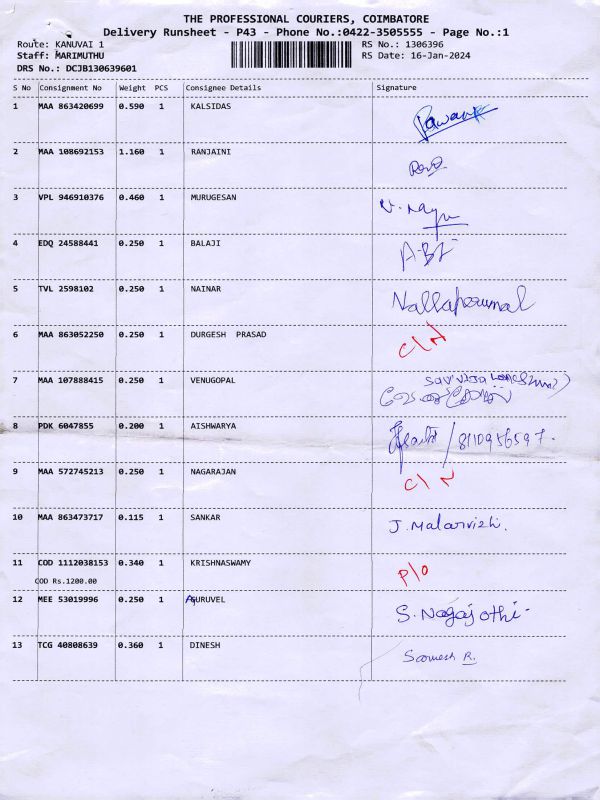 THE PROFESSIONAL COURIERS, COIMBATORE
Delivery Runsheet - P43 - Phone No.:0422-3505555 - Page No.:1
Route: KANUVAI 1 RS No.: 1306396
Staff: MARIMUTHU RS Date: 16-Jan-2024
DRS No.: DCJB130639601
S No Consignment No Weight PCS Consignee Details Signature
1 MAA 863420699 0.590 1 KALSIDAS
2 MAA 108692153 1.160 1 RANJAINI
3 VPL 946910376 0.460 1 MURUGESAN
4 EDQ 24588441 0.250 1 BALAJI
5 TVL 2598102 0.250 1 NAINAR Nallaperumal
6 MAA 863052250 0.250 1 DURGESH PRASAD C/N
7 MAA 107888415 0.250 1 VENUGOPAL
8 PDK 6047855 0.200 1 AISHWARYA / 8110956597.
9 MAA 572745213 0.250 1 NAGARAJAN C/N
10 MAA 863473717 0.115 1 SANKAR J. Malarvizhi.
11 COD 1112038153 0.340 1 KRISHNASWAMY P/O
COD Rs.1200.00
12 MEE 53019996 0.250 1 AGURUVEL S. Nagajothi.
13 TCG 40808639 0.360 1 DINESH R.